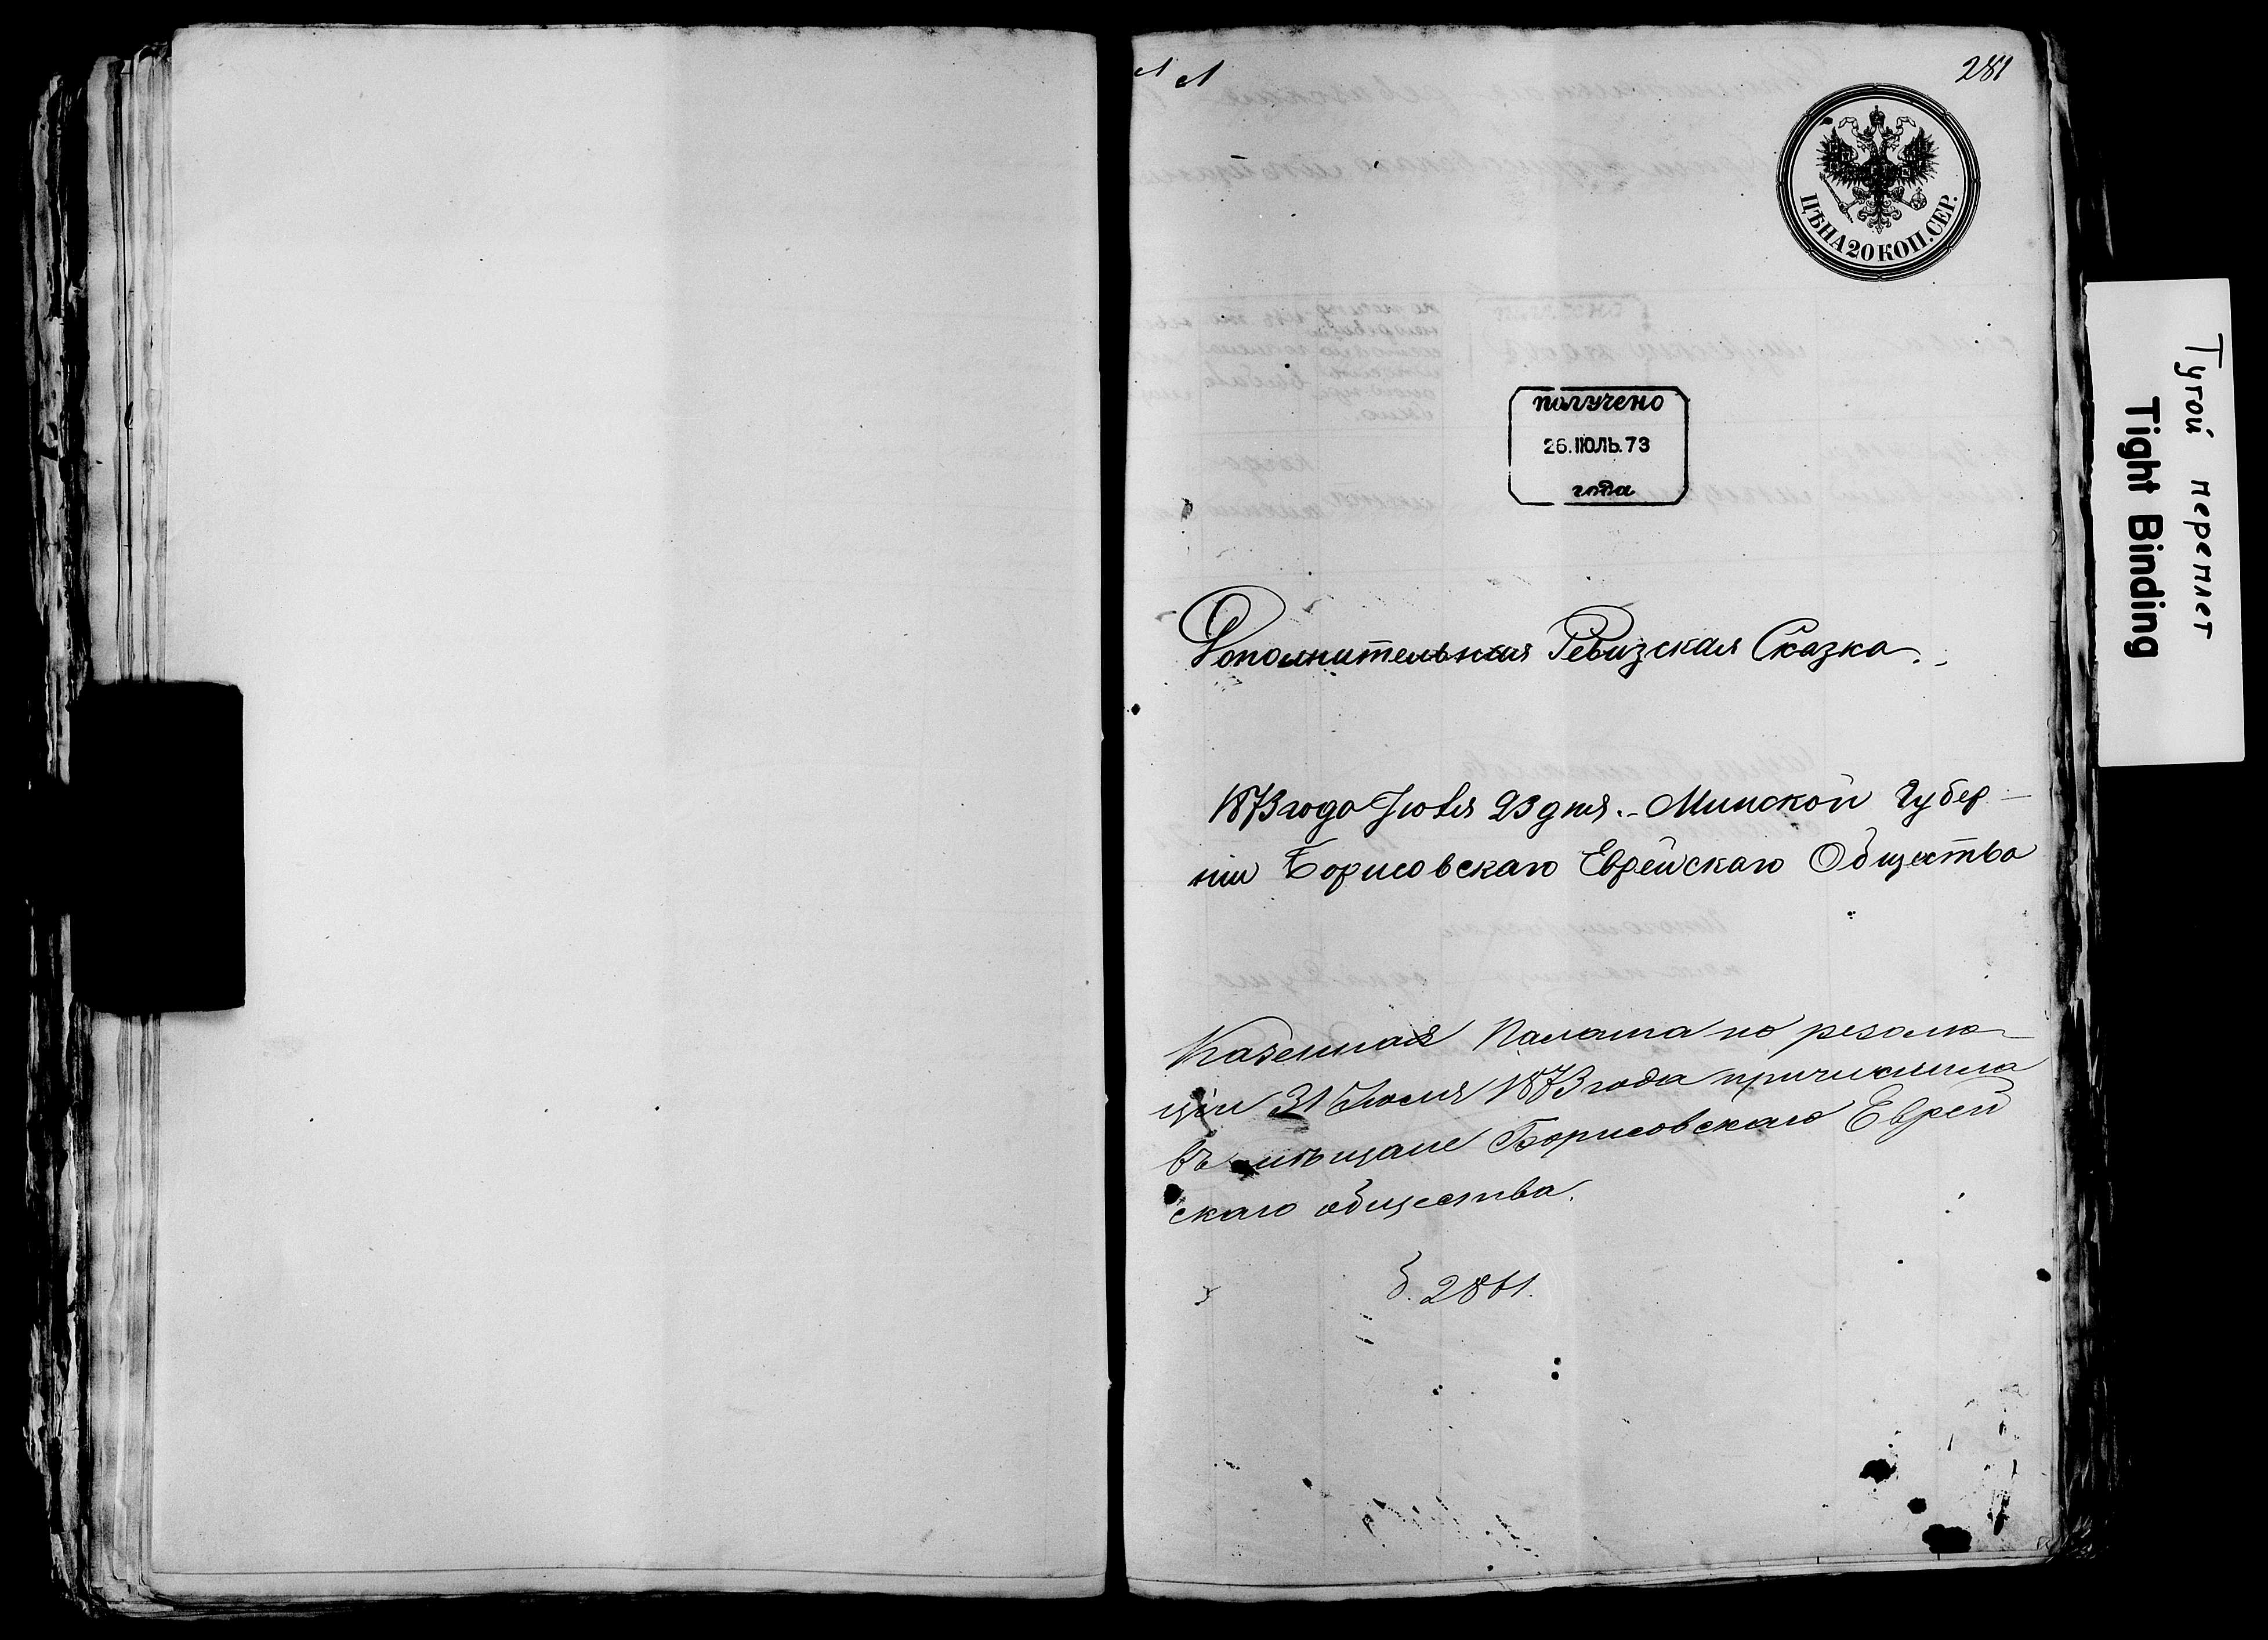 281
ЦѢНА 20 КОП. СЕР.
получено
26. ІЮЛЬ. 73
года
Дополнительная Ревизская Сказка.
1873 года Іюля 23 дня. Минской Губер-
ніи Борисовскаго Еврейскаго Общества
Казенная Палата по резолю-
ціи 31 Іюля 1873 года причислила
въ мѣщане Борисовскаго Еврей
скаго общества.
2861.
Тугой переплет
Tight Binding